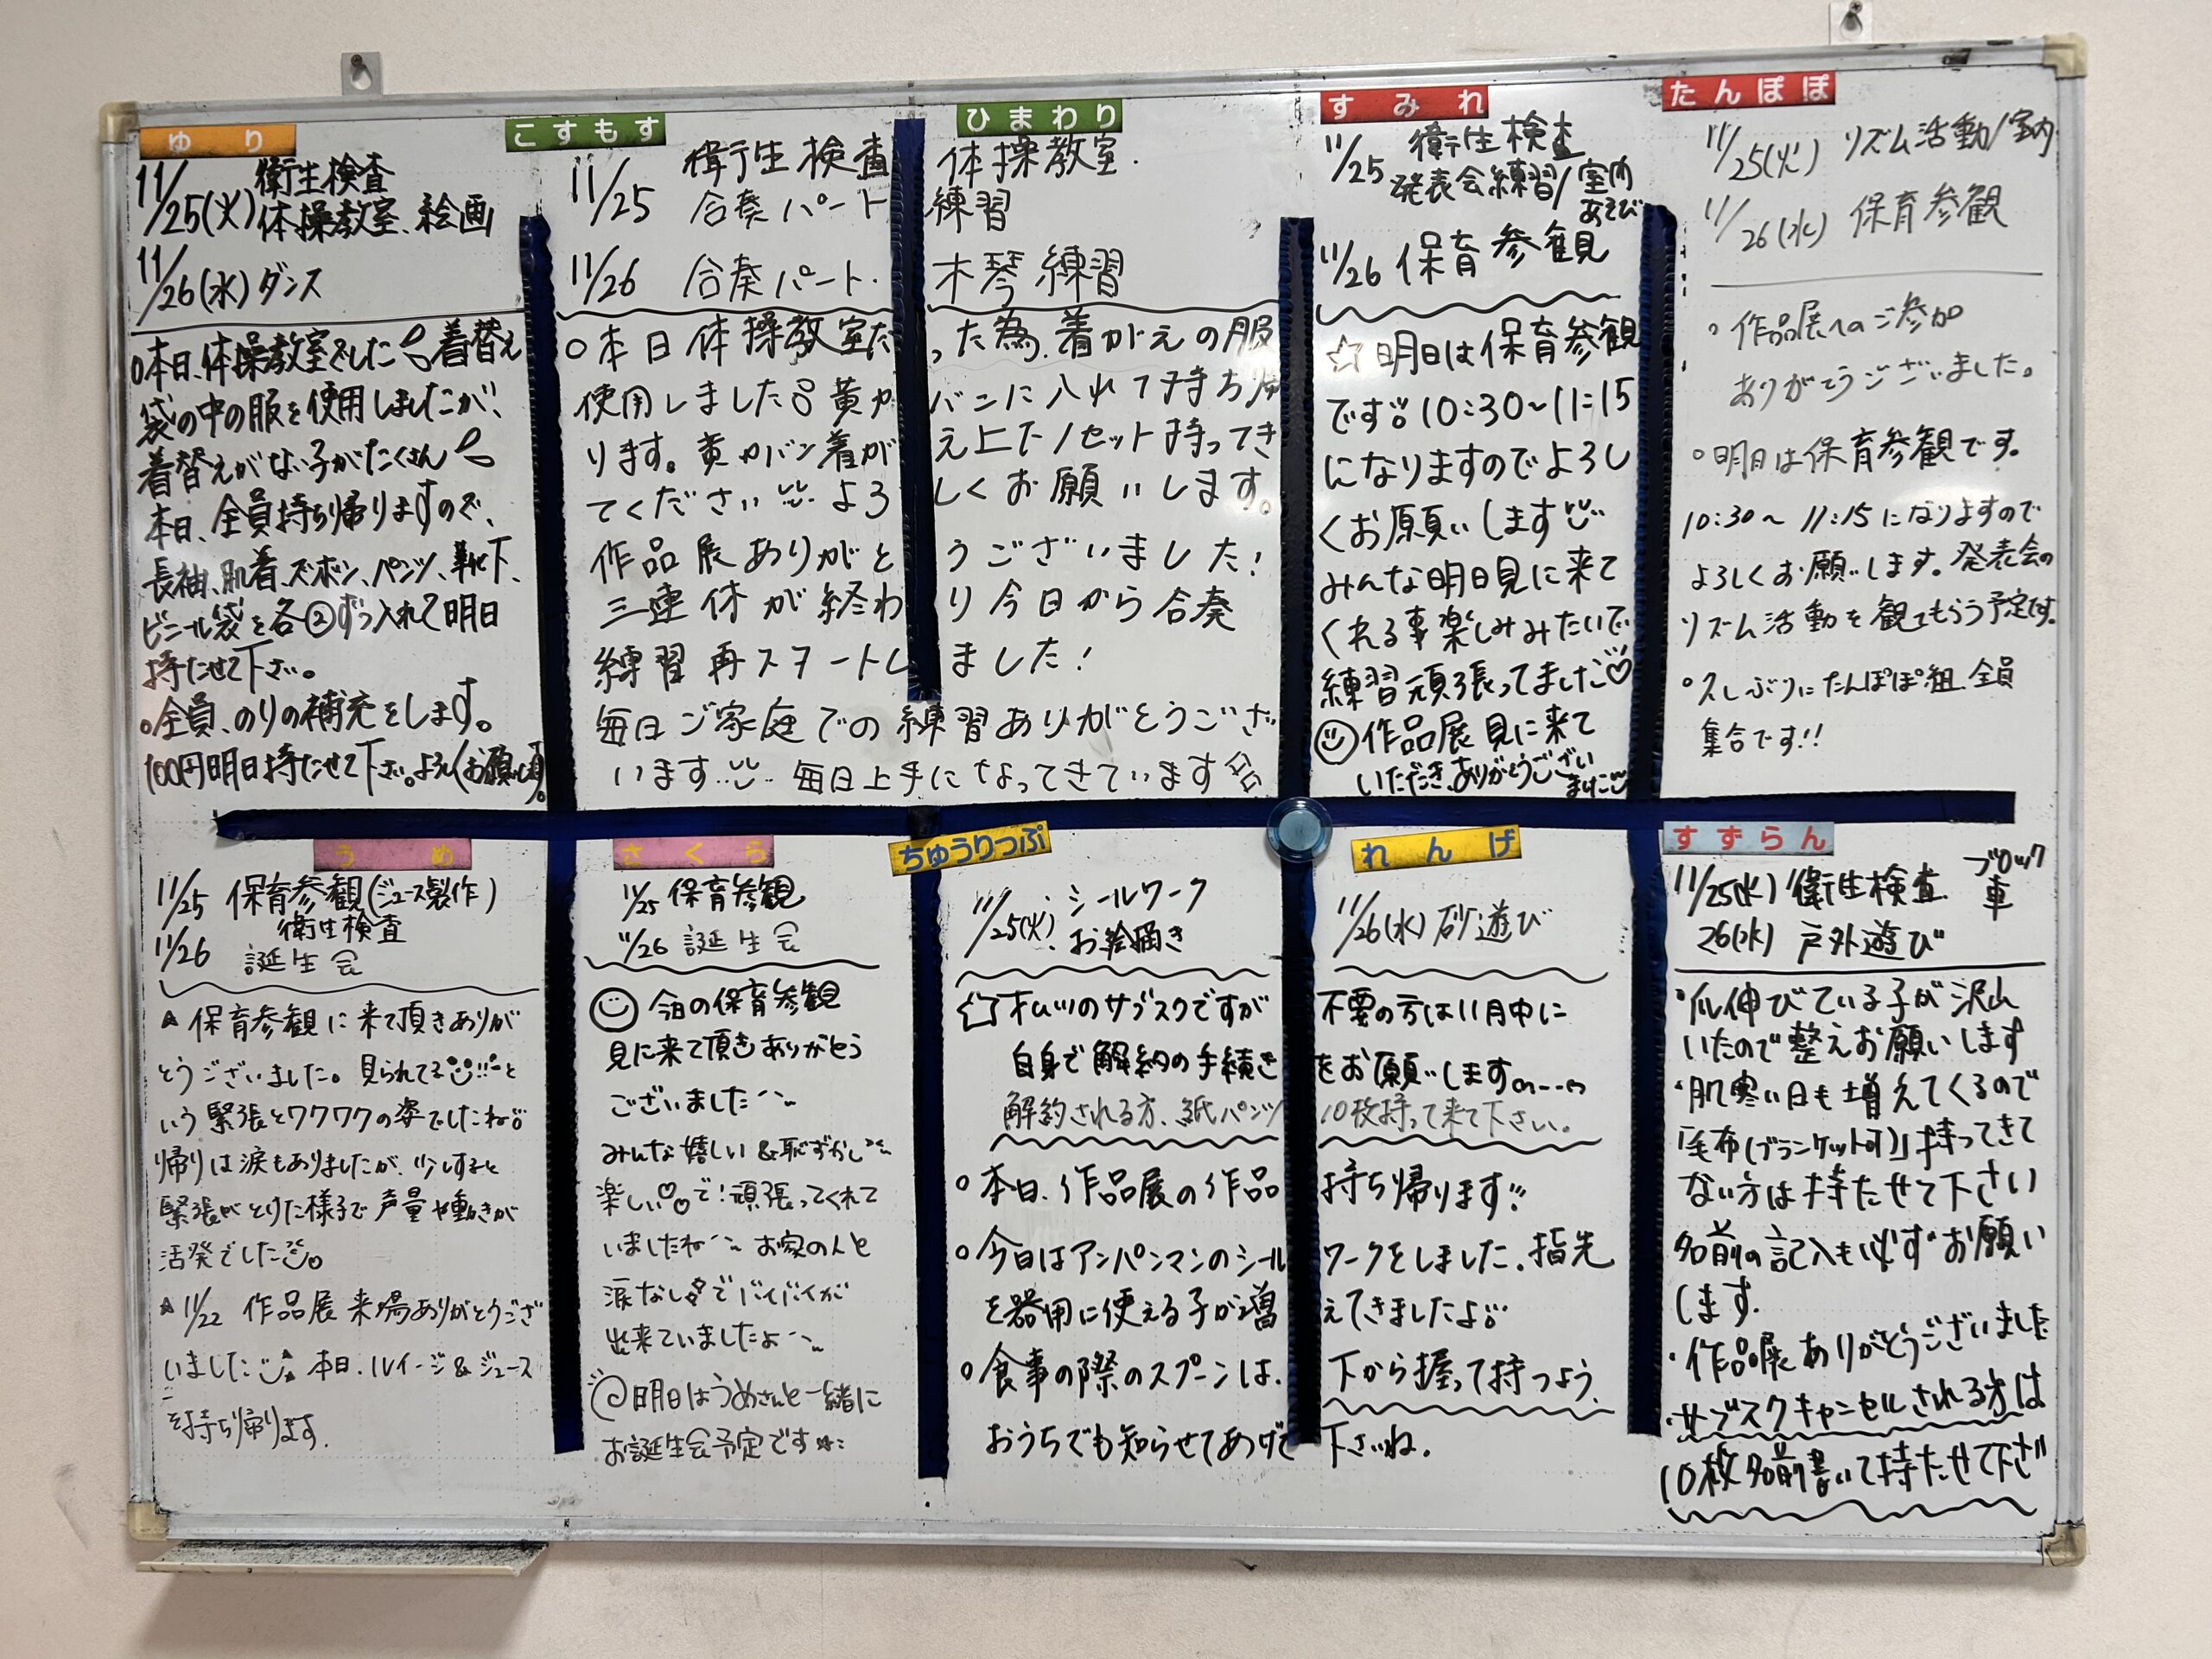 ゆり
11/25(火) 衛生検査
体操教室、絵画
11/26(水) ダンス
○本日、体操教室でした 着替え
袋の中の服を使用しましたが、
着替えがない子がたくさん
本日、全員持ち帰りますので、
長袖、肌着、ズボン、パンツ、靴下、
ビニール袋を各②ずつ入れて明日
持たせて下さい。
○全員、のりの補充をします。
100円明日持たせて下さい。よろしくお願いします。
こすもす ひまわり
11/25 衛生検査 体操教室.
合奏パート練習
11/26 合奏パート. 木琴練習
○本日体操教室だった為、着がえの服
使用しました 黄カバンに入れて持ち帰
ります。黄カバン着がえ上下1セット持ってき
てください よろしくお願いします。
作品展ありがとうございました!
三連休が終わり今日から合奏
練習再スタートしました!
毎日ご家庭での練習ありがとうござ
います 毎日上手になってきています
すみれ
11/25 衛生検査
発表会練習/室内あそび
11/26 保育参観
☆明日は保育参観
です 10:30~11:15
になりますのでよろし
くお願いします
みんな明日見に来て
くれる事楽しみみたいで
練習頑張ってました♡
作品展見に来て
いただき、ありがとうござい
ました
たんぽぽ
11/25(火) リズム活動/室内
11/26(水) 保育参観
○作品展へのご参加
ありがとうございました。
○明日は保育参観です。
10:30~11:15になりますので
よろしくお願いします。発表会の
リズム活動を観てもらう予定です。
○久しぶりにたんぽぽ組、全員
集合です!!
うめ
11/25 保育参観(ジュース製作)
衛生検査
11/26 誕生会
★保育参観に来て頂きありが
とうございました。見られてる!!と
いう緊張とワクワクの姿でしたね
帰りは涙もありましたが、少しすると
緊張がとりた様子で声量や動きが
活発でした。
★11/22 作品展来場ありがとうござ
いました 本日、ルイージ&ジュース
を持ち帰ります.
さくら
11/25 保育参観
11/26 誕生会
今日の保育参観
見に来て頂きありがとう
ございました
みんな嬉しい&恥ずかしい
楽しい♡で!頑張ってくれて
いましたね お家の人と
涙なしでバイバイが
出来ていましたよ
明日はうめさんと一緒に
お誕生会予定です☆
ちゅうりっぷ れんげ
11/25(火) シールワーク
お絵描き
11/26(水) 砂遊び
☆オムツのサブスクですが不要の方は11月中に
自身で解約の手続きをお願いします
解約される方、紙パンツ10枚持って来て下さい。
○本日、作品展の作品持ち帰ります!!
○今日はアンパンマンのシールワークをしました。指先
を器用に使える子が増えてきましたよ
○食事の際のスプーンは、下から握って持つよう、
おうちでも知らせてあげて下さいね.
すずらん
11/25(火) 衛生検査 ブロック
車
26(水) 戸外遊び
・爪伸びている子が沢山
いたので整えお願いします
・肌寒い日も増えてくるので
毛布(ブランケット可)持ってきて
ない方は持たせて下さい
名前の記入も必ずお願い
します.
・作品展ありがとうございました
・サブスクキャンセルされる方は
10枚名前書いて持たせて下さい